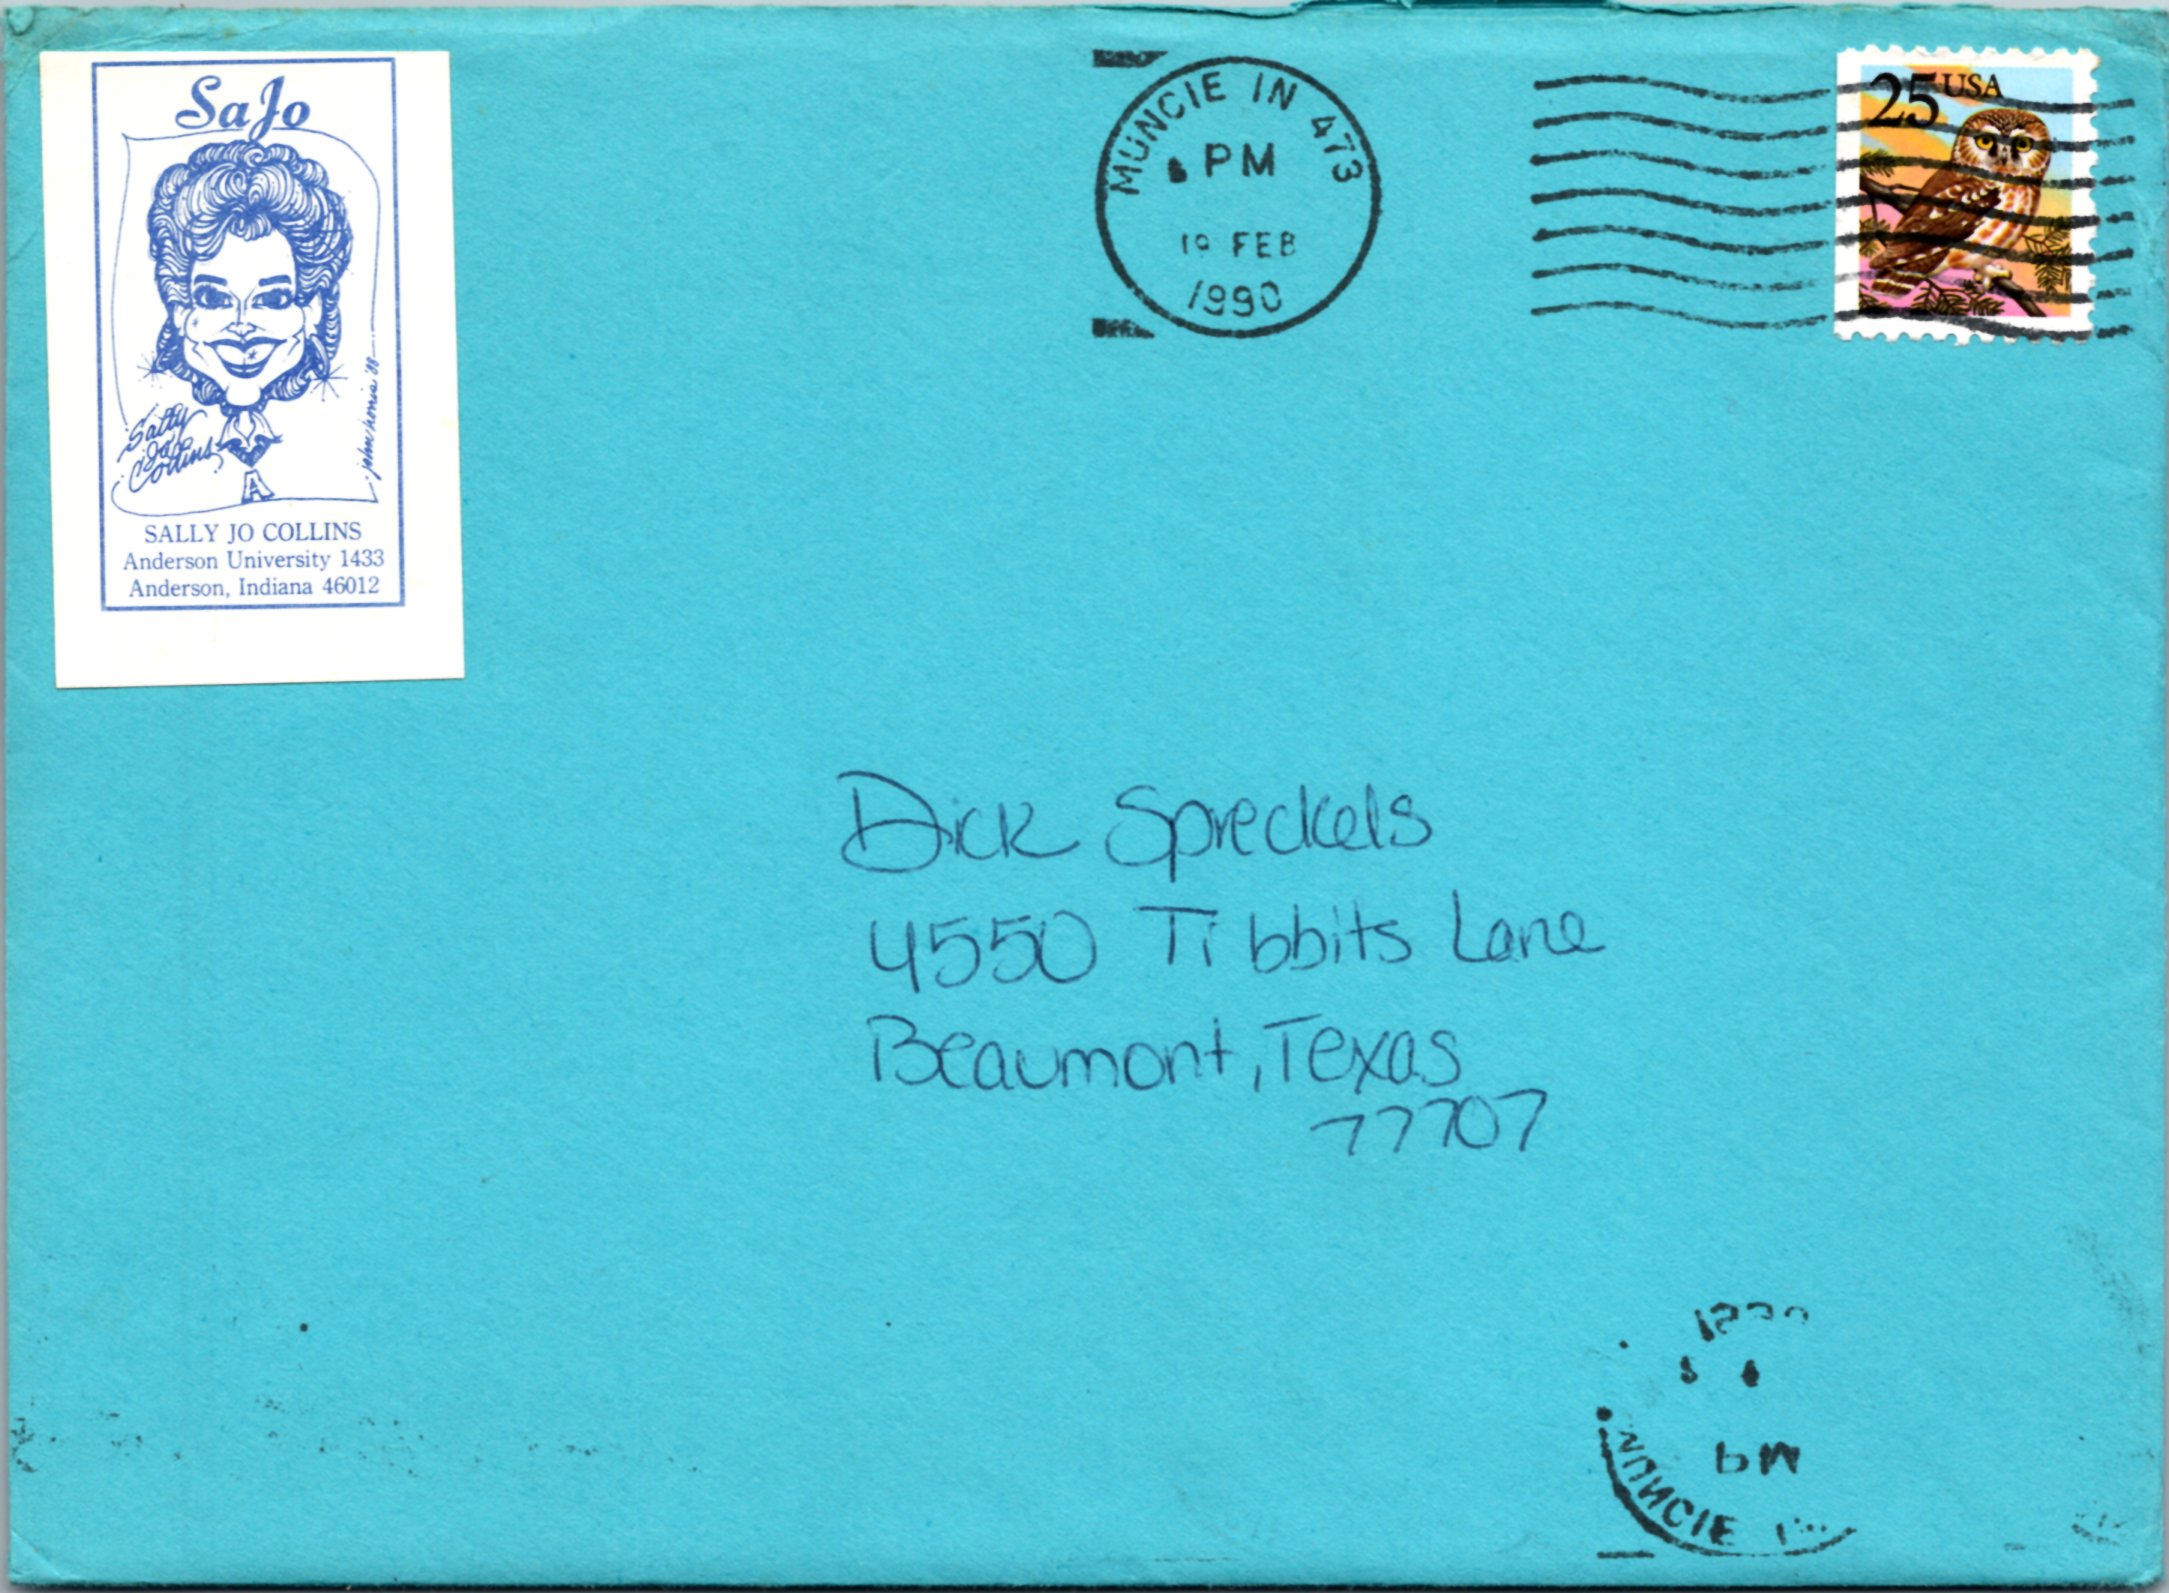 SaJo
Sally
Jo
Collins
john norris '88
A
SALLY JO COLLINS
Anderson University 1433
Anderson, Indiana 46012
MUNCIE IN 473
PM
FEB
1990
25 USA
Dick Spreckels
4550 Tibbits Lane
Beaumont, Texas
77707
PM
MUNCIE